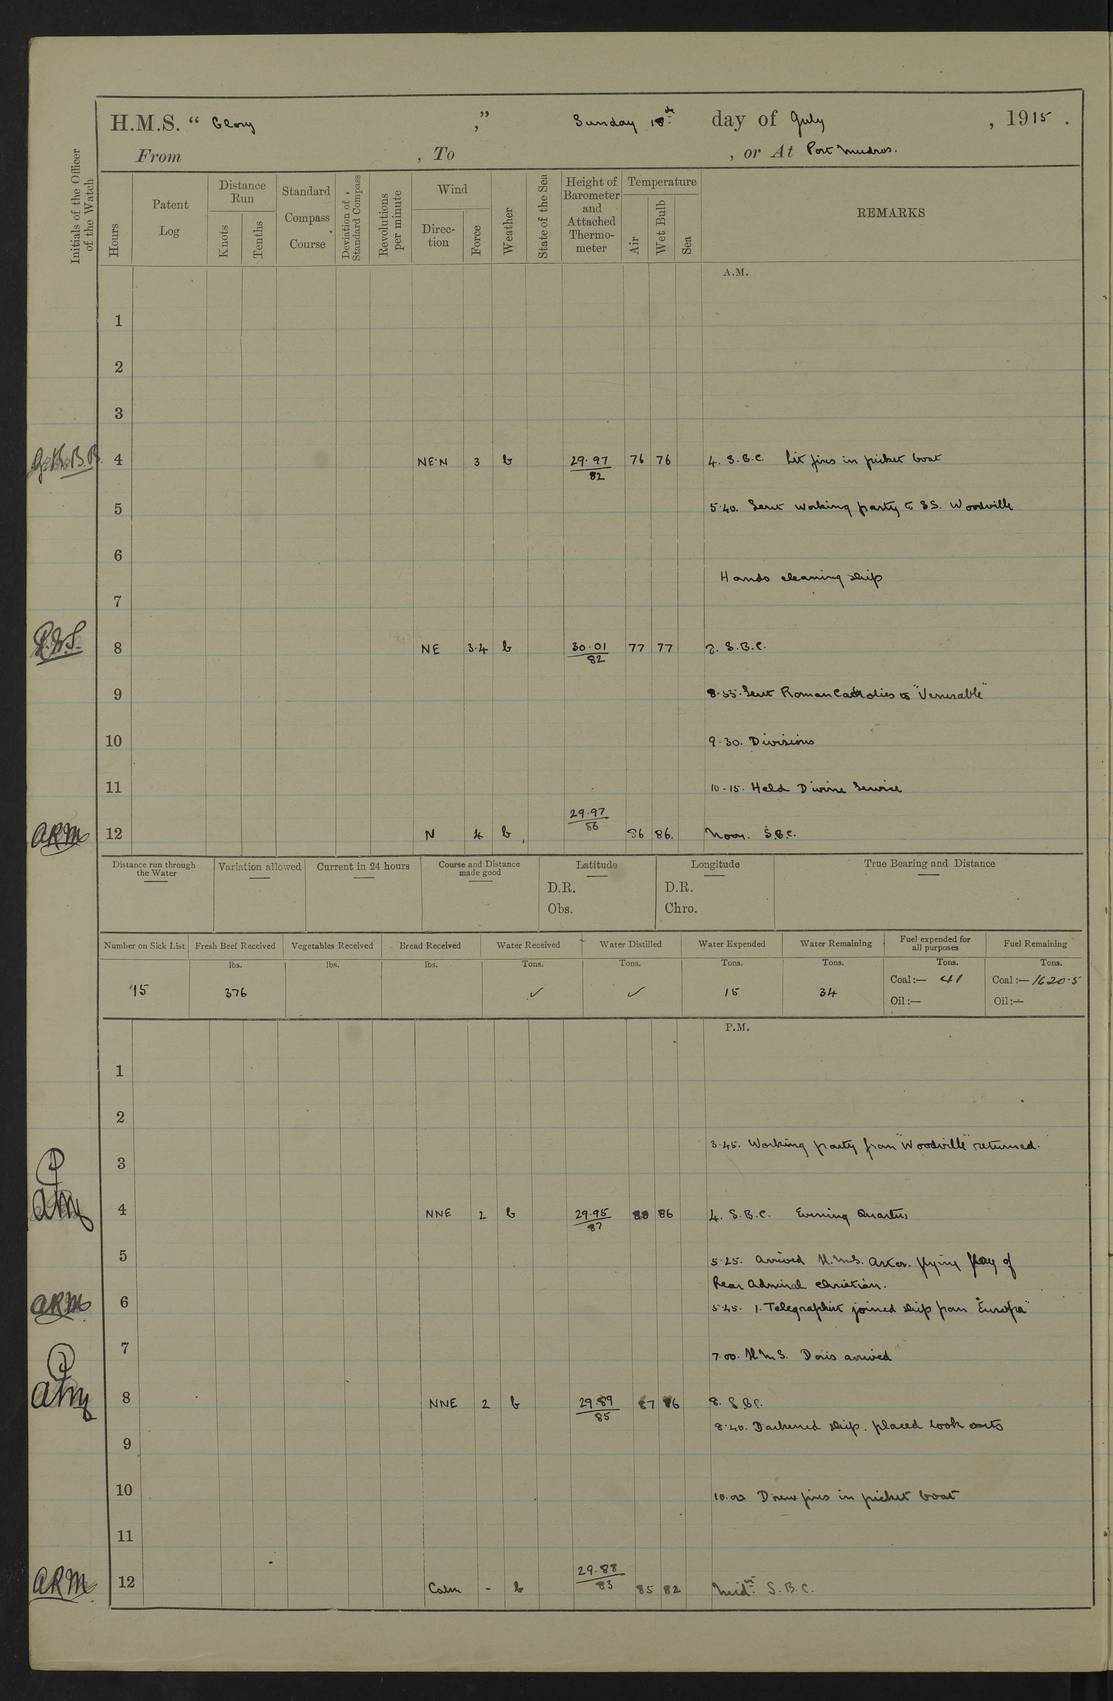 H.M.S. “ Glory ,” Sunday 18th day of July , 1915 .
From , To , or At Port Mudros.
Initials of the Officer of the Watch
Hours
Patent Log
Distance Run
Knots
Tenths
Standard Compass Course
Deviation of Standard Compass
Revolutions per minute
Wind
Direc- tion
Force
Weather
State of the Sea
Height of Barometer and Attached Thermo- meter
Temperature
Air
Wet Bulb
Sea
REMARKS
A.M.
1
2
3
4 NE'N 3 b 29.97 76 76 4. S.B.C. Lit fires in picket boat
82
5 5.40. Sent working party to SS. Woodville
6
Hands cleaning ship
7
8 NE 3.4 b 30.01 77 77 8. S.B.C.
82
9 8.55. Sent Roman Catholics to "Venerable"
10 9.30. Divisions
11 10.15. Held Divine Service
29.97
86
ARM 12 N 4 b 86 86. Noon. S.B.C.
Distance run through the Water
Variation allowed
Current in 24 hours
Course and Distance made good
Latitude
D.R.
Obs.
Longitude
D.R.
Chro.
True Bearing and Distance
Number on Sick List
Fresh Beef Received
Vegetables Received
Bread Received
Water Received
Water Distilled
Water Expended
Water Remaining
Fuel expended for all purposes
Fuel Remaining
lbs. lbs. lbs. Tons. Tons. Tons. Tons. Tons. Tons.
15 376 ✓ ✓ 15 34 Coal :— 41 Coal :— 1620.5
Oil :— Oil :—
P.M.
1
2
3.45. Working party from "Woodville" returned.
3
4 NNE 2 b 29.95 88 86 4. S.B.C. Evening Quarters
87
5 5.25. Arrived H.M.S. flying flag of
Rear Admiral Christian.
ARM 6 5.45. 1. Telegraphist joined ship from "Europa"
7 7.00. H.M.S. Doris arrived
8 NNE 2 b 29.89 87 86 8. S.B.C.
85
8.40. Darkened ship. placed look outs
9
10 10.00 Drew fires in picket boat
11
29.88
83
ARM 12 Calm - b 85 82 Midt. S.B.C.